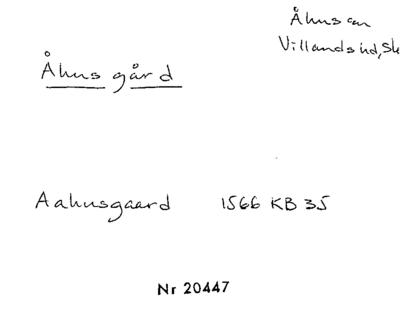 Åhus
Villands hd, Sk
Åhus gård
Aahusgaard 1566 KB 35
Nr 20447